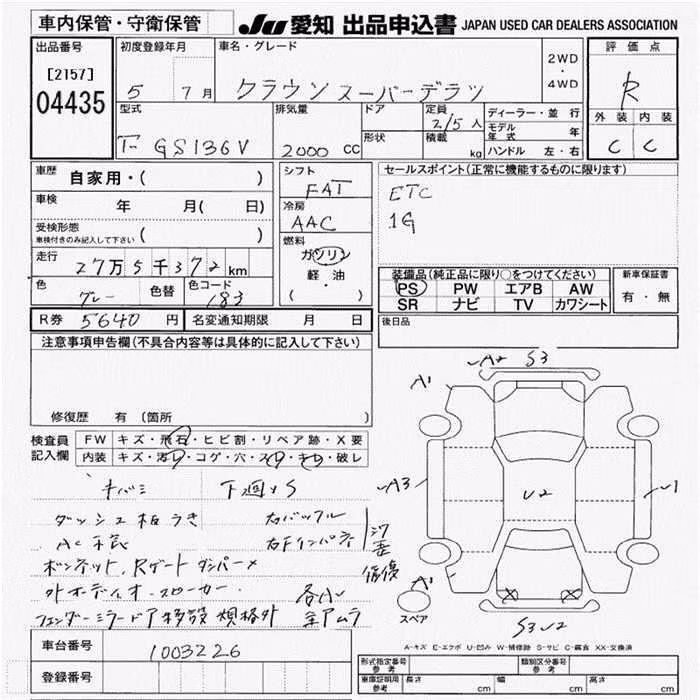 車内保管・守衛保管
JU 愛知 出品申込書 JAPAN USED CAR DEALERS ASSOCIATION
出品番号
[2157]
04435
初度登録年月
5 7 月
車名・グレード
クラウン スーパーデラックス
2WD
・
4WD
評価点
R
外装 内装
C C
型式
GS136V
排気量
2000 CC
ドア
形状
定員
2/5 人
積載
kg
ディーラー・並行
モデル年式 年
ハンドル 左・右
車歴
自家用・( )
車検
年 月( 日)
受検形態
車検付きのみ記入して下さい ( )
走行
27万5千372 km
色
グレー
色替
色コード
183
シフト
FAT
冷房
AAC
燃料
ガソリン
軽油
( ・ )
セールスポイント(正常に機能するものに限ります)
ETC
1G
装備品(純正品に限り○をつけてください)
PS PW エアB AW
SR ナビ TV カワシート
新車保証書
有・無
R券 5640 円
名変通知期限 月 日
後日品
注意事項申告欄(不具合内容等は具体的に記入して下さい)
修復歴 有 (箇所 )
検査員記入欄
FW キズ・飛石・ヒビ割・リペア跡・X要
内装 キズ・汚レ・コゲ・穴・スレ・キレ・破レ
キバミ 下廻りS
ダッシュ板うき 右バッフル
AC 右Fインパネ
ボンネット、Rゲートダンパー×
外オーディオ・スピーカー 各小
フェンダーミラー ドア移設 規格外
A1
A2
S3
A3
U2
U1
A1
S3 U2
スペア
A-キズ E-エクボ U-凹み W-補修跡 S-サビ C-腐食 XX-交換済
車台番号
1003226
登録番号
形式指定番号
参考
類別区分番号
参考
車庫証明用
参考
長さ cm
幅 cm
高さ cm